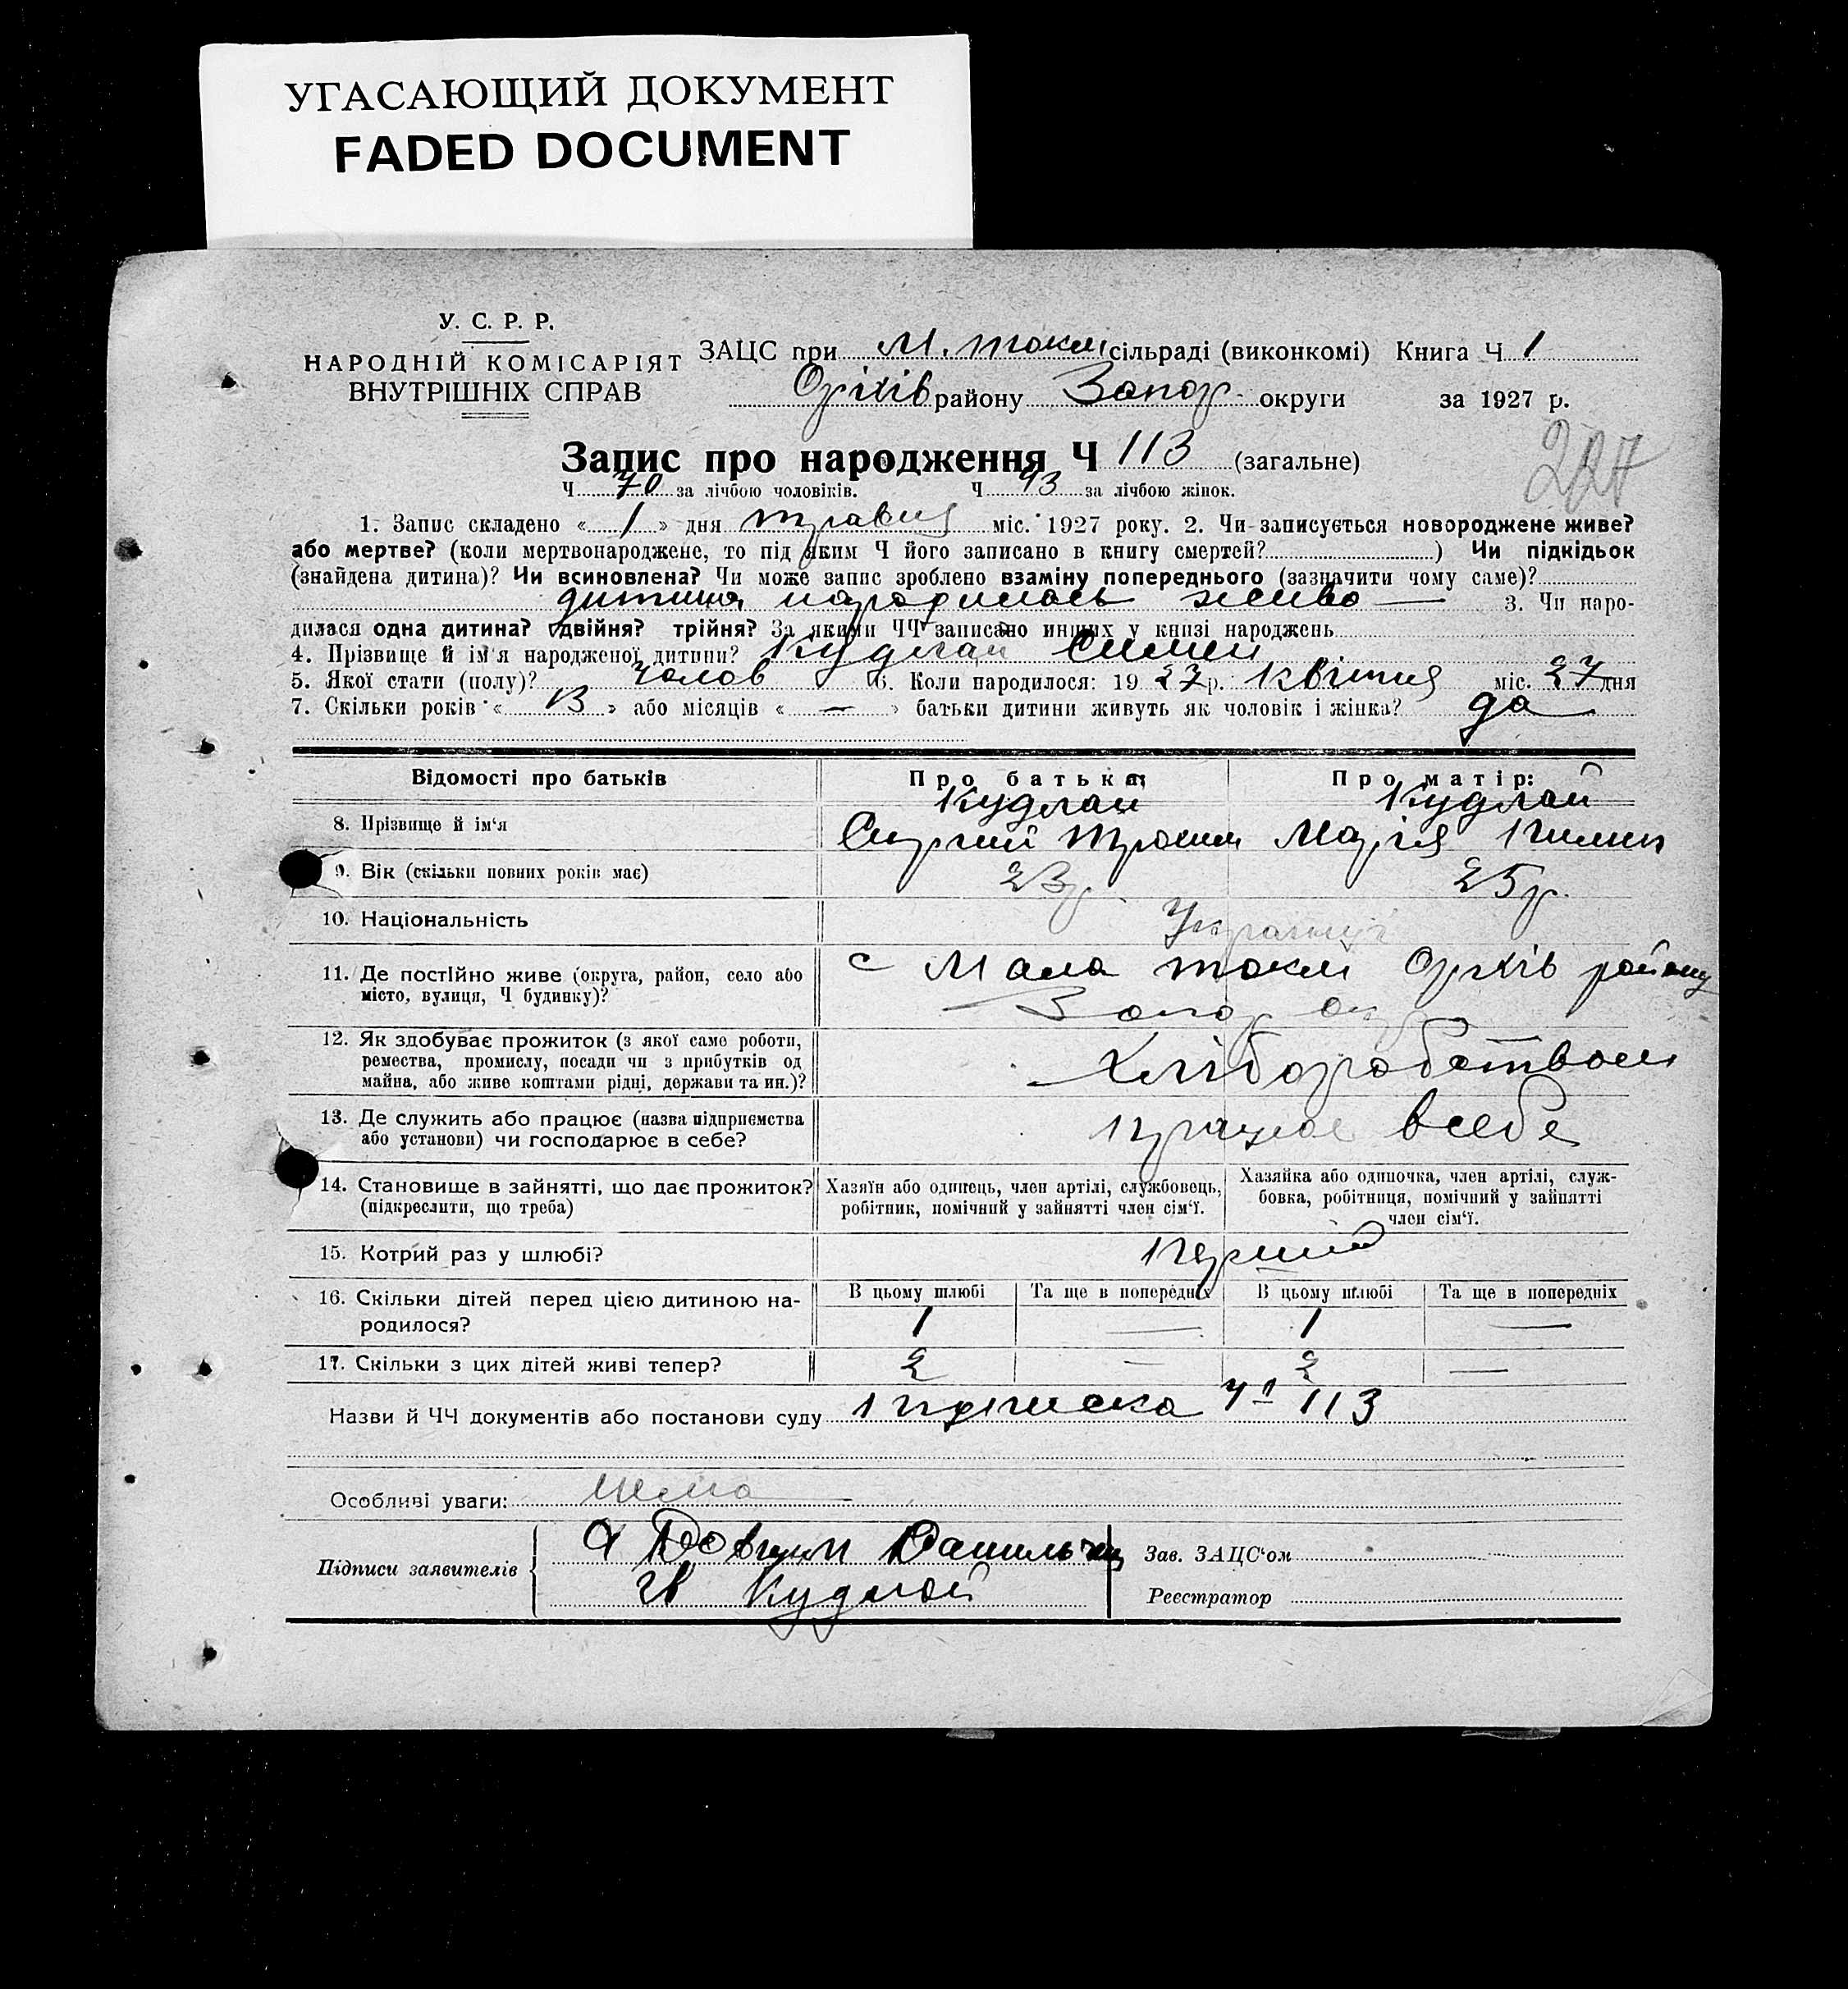 УГАСАЮЩИЙ ДОКУМЕНТ
FADED DOCUMENT
У. С. Р. Р.
НАРОДНІЙ КОМІСАРІЯТ
ВНУТРІШНІХ СПРАВ
ЗАЦС при М. токм сільраді (виконкомі) Книга Ч 1
Оріхів району Запор. округи за 1927 р.
Запис про народження Ч 113 (загальне)
Ч 70 за лічбою чоловіків. Ч 43 за лічбою жінок.
1. Запис складено « 1 » дня травня міс. 1927 року. 2. Чи записується новороджене живе?
або мертве? (коли мертвонароджене, то під яким Ч його записано в книгу смертей?) Чи підкідьок
(знайдена дитина)? Чи всиновлена? Чи може запис зроблено взаміну попереднього (зазначити чому саме)?
дитина народилась живо — 3. Чи наро-
дилася одна дитина? двійня? трійня? За якими ЧЧ записано инших у книзі народжень
4. Прізвище й ім'я народженої дитини? Кудлай Симен
5. Якої стати (полу)? Чолов 6. Коли народилося: 1927 р. Квітня міс. 27 дня
7. Скільки років « » або місяців « — » батьки дитини живуть як чоловік і жінка? да
Відомості про батьків Про батька: Про матір:
8. Прізвище й ім'я Кудлай Кудлай
Сергий Трохим Марія
9. Вік (скільки повних років має) 23р. 25р.
10. Національність Українці
11. Де постійно живе (округа, район, село або
місто, вулиця, Ч будинку)? с Мала токм Оріхів району
Запор окр
12. Як здобуває прожиток (з якої саме роботи,
ремества, промислу, посади чи з прибутків од
майна, або живе коштами рідні, держави та ин.)? Хліборобством
13. Де служить або працює (назва підприємства
або установи) чи господарює в себе? працює всебе
14. Становище в зайнятті, що дає прожиток?
(підкреслити, що треба)
Хазяїн або одинець, член артілі, службовець,
робітник, помічний у зайнятті член сім'ї.
Хазяйка або одиночка, член артілі, служ-
бовка, робітниця, помічний у зайнятті
член сім'ї.
15. Котрий раз у шлюбі? перший
16. Скільки дітей перед цією дитиною на-
родилося?
В цьому шлюбі Та ще в попередніх В цьому шлюбі Та ще в попередніх
1 — 1 —
17. Скільки з цих дітей живі тепер? 2 — 2 —
Назви й ЧЧ документів або постанови суду підписка Ч 113
Особливі уваги: нема
Підписи заявителів Зав. ЗАЦС'ом
Кудлай Реєстратор